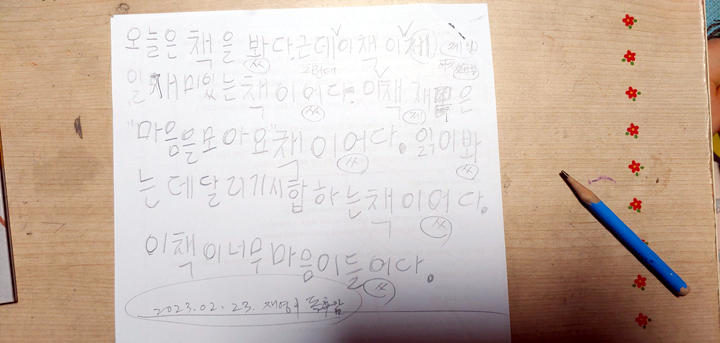 오늘은 책을 봐다.근데 이책 이 채(제일)
일 재미있는책이어다. 이책 채目은
"마음을모아요"책이어다. 읽어봐
는데달리기시합하는책이어다.
이책이너무마음이들어다.
2023.02.23. 재영이 독후감